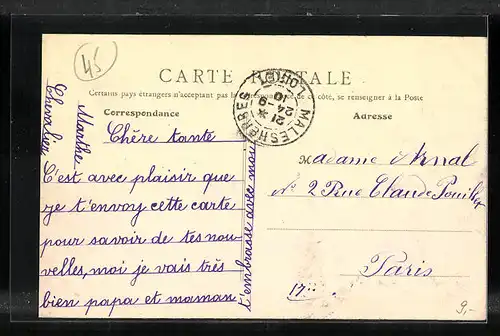 45
CARTE POSTALE
Certains pays étrangers n'acceptant pas la correspondance de ce côté, se renseigner à la Poste
Correspondance
Adresse
MALESHERBES
LOIRET
21 *
24-9
10
Chère tante
C'est avec plaisir que
je t'envoy cette carte
pour savoir de tes nou-
velles, moi je vais très
bien papa et maman
t'embrasse avec moi
Marthe
Chevalier
Madame Arnal
No 2 Rue Claude Pouillet
Paris
17
9,-